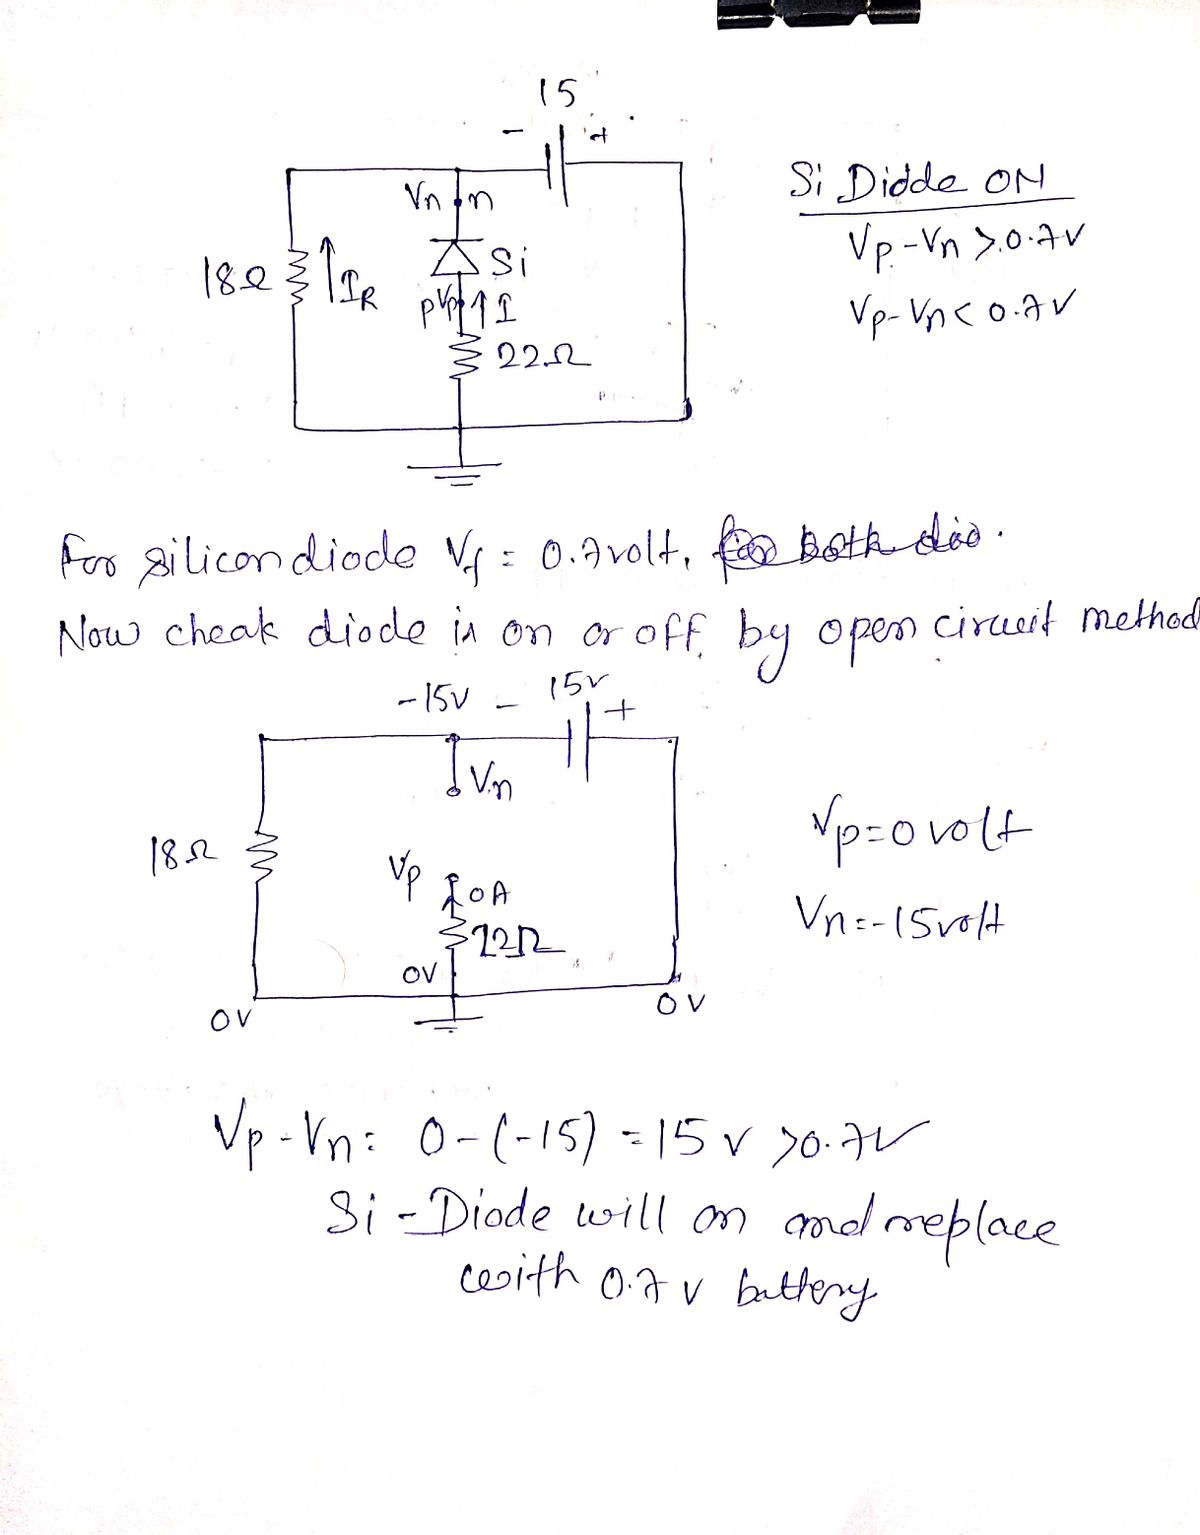 15
- +
Vn n
18Ω IR Si
P Vp I
22Ω
Si Diode ON
Vp-Vn >0.7V
Vp-Vn < 0.7V
For silicon diode Vf = 0.7volt, for Both dio.
Now cheak diode is on or off by open circuit method
-15V - 15V +
Vn
18Ω
Vp 0A
22Ω
0V
0V 0V
Vp=0 volt
Vn=-15volt
Vp-Vn= 0-(-15) =15 V >0.7V
Si-Diode will on and replace
with 0.7 V battery